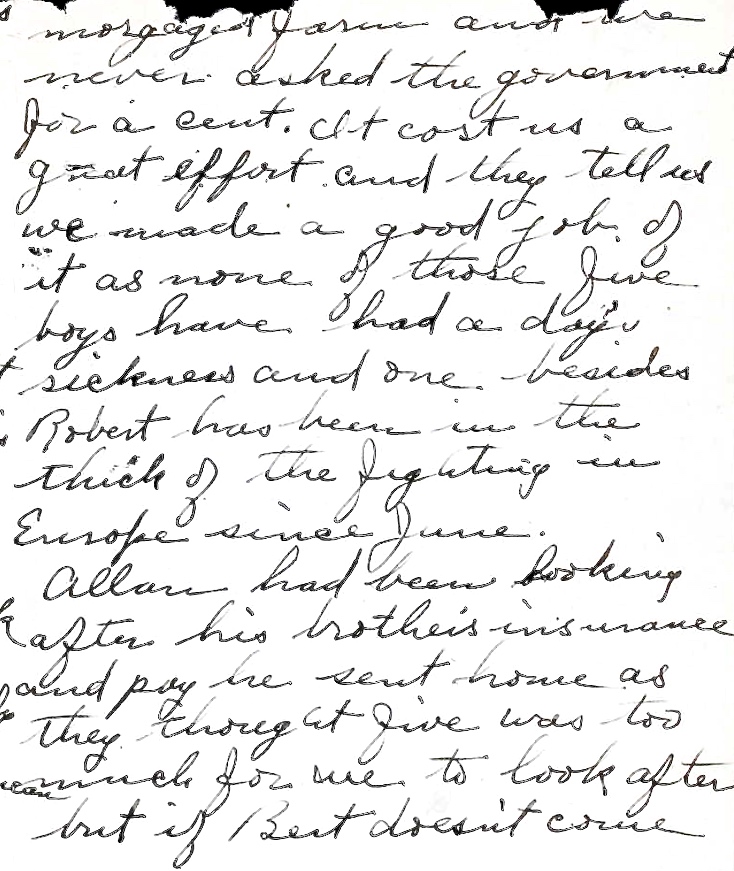 morgaged farm and we
never asked the government
for a cent. It cost us a
great effort and they tell us
we made a good job of
it as none of those five
boys have had a day's
sickness and one besides
Robert has been in the
thick of the fighting in
Europe since June.
Allan had been looking
after his brother's insurance
and pay he sent home as
they thought five was too
much for me to look after
but if Bert doesn't come